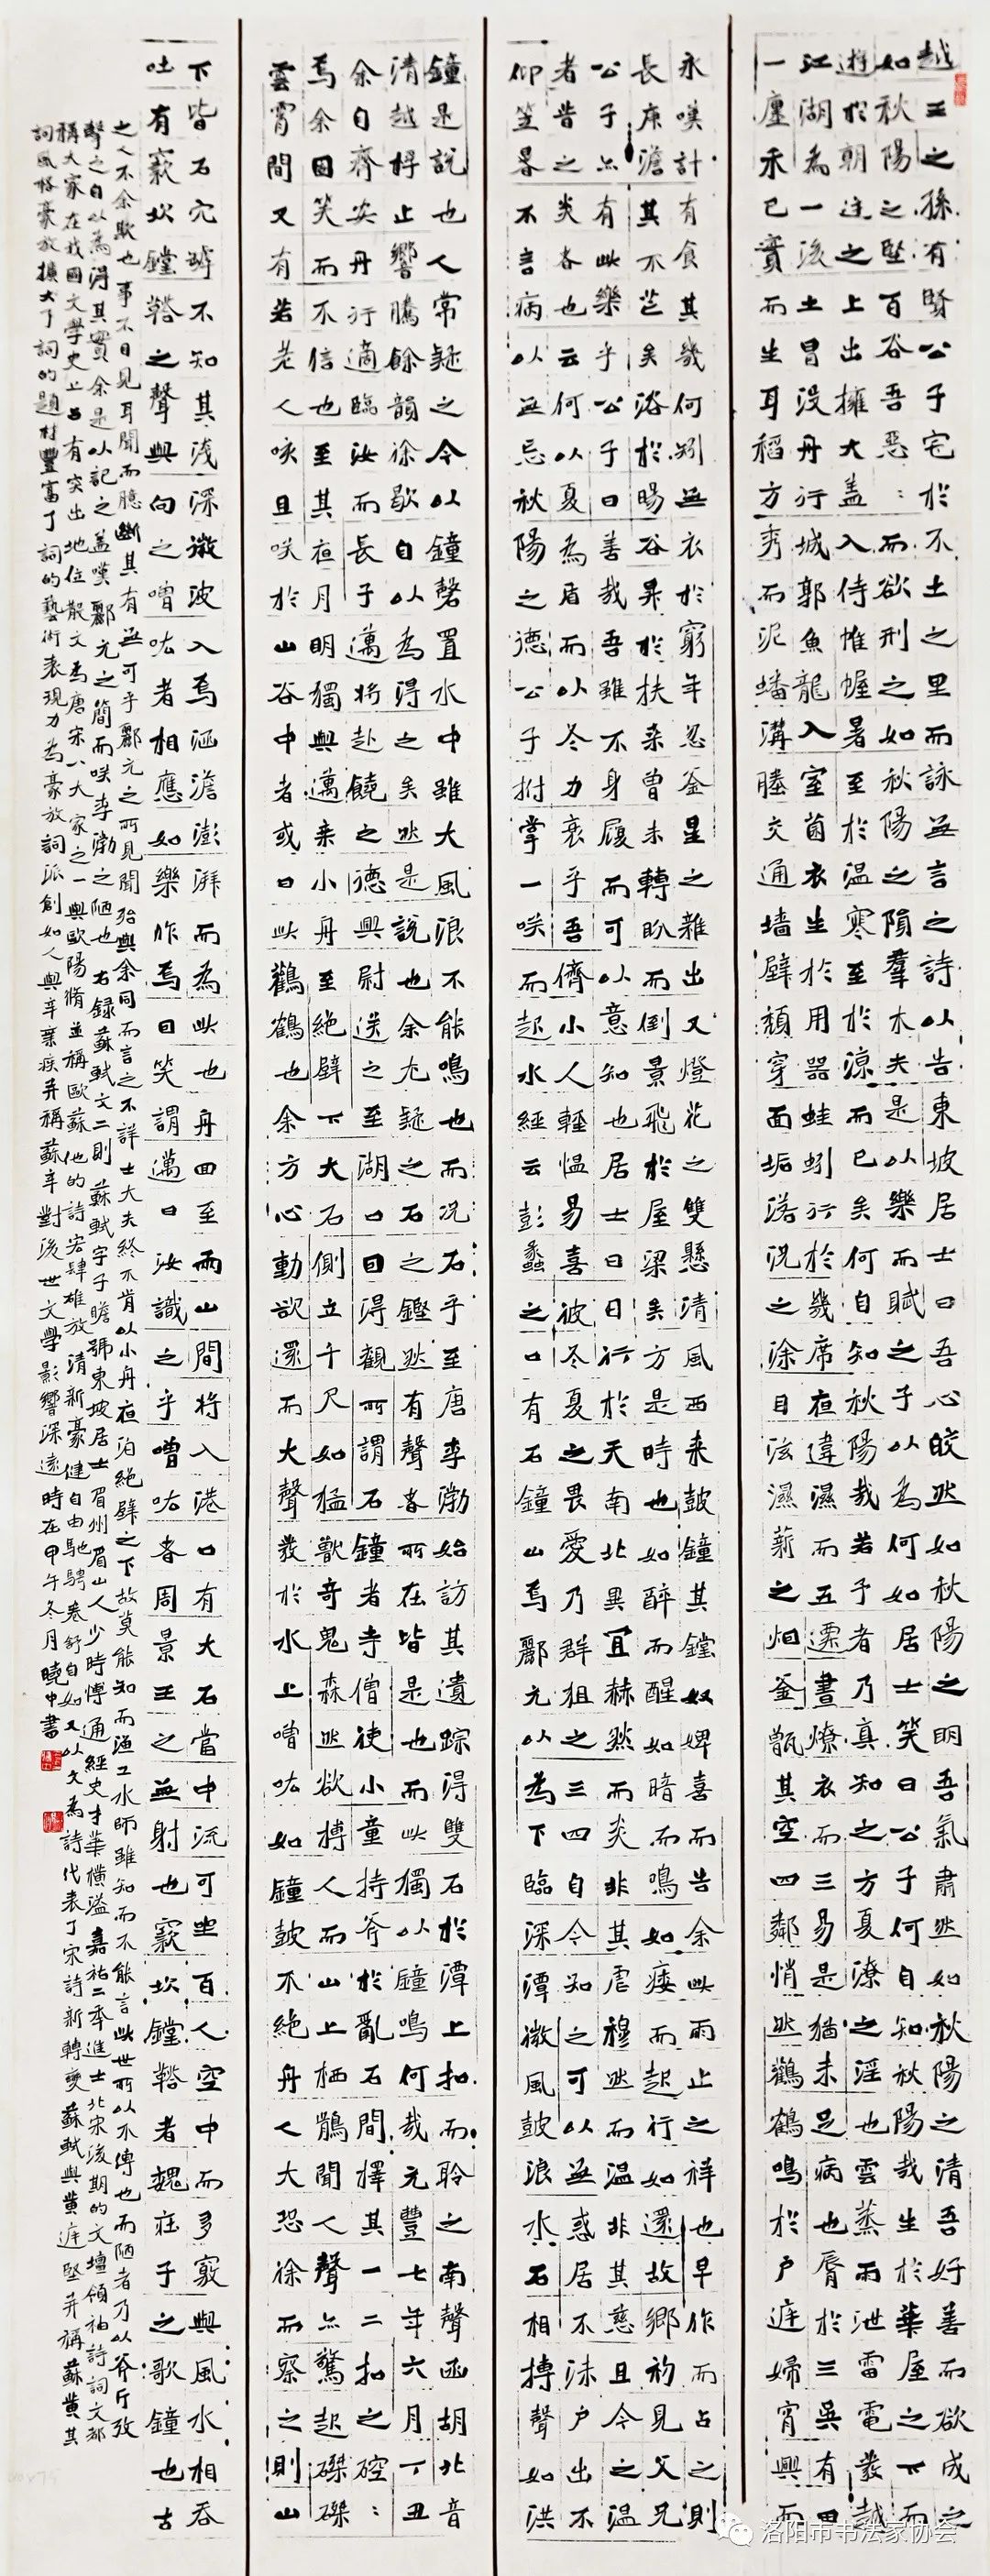 越王之孫有賢公子宅於不土之里而詠無言之詩以告東坡居士曰吾心皎然如秋陽之明吾氣肅然如秋陽之清吾好善而欲成之
如秋陽之堅百谷吾惡:而欲刑之如秋陽之隕羣木夫是以樂而賦之子以為何如居士笑曰公子何自知秋陽哉生於華屋之下而
遊於朝廷之上出擁大蓋入侍帷幄暑至於温寒至於涼而已矣何自知秋陽哉若予者乃真知之方夏潦之淫也雲蒸雨泄雷電發越
江湖為一後土冒没舟行城郭魚龍入室菌衣生於用器蛙蚓行於幾席夜違濕而五遷晝燎衣而三易是猶未足病也於三吳有田
一廛禾已實而生耳稻方秀而泥蟠溝塍交通墻壁頹穿面垢落之涂目泫濕薪之烟釜甑其空四鄰悄然鸛鶴鳴於戶庭婦宵興而
永嘆計有食其幾何矧無衣於窮年忽釜星之雜出又燈花之雙懸清風西來鼓鐘其鏜奴婢喜而告余此雨止之祥也早作而占之則
長庚澹其不芒矣浴於暘谷昇於扶桑曾未轉盼而倒景飛於屋梁矣方是時也如醉而醒如暗而鳴如痿而起行如還故鄉初見父兄
公子亦有此樂乎公子曰善哉吾雖不身履而可以意知也居士曰日行於天南北異宜赫然而炎非其虐穆然而温非其慈且今之温
者昔之炎者也云何以夏為盾而以冬力衰乎吾儕小人輕愠易喜彼冬夏之畏愛乃群狙之三四自今知之可以無惑居不沫戶出不
仰笠暑不言病以無忘秋陽之德公子拊掌一咲而起水經云彭蠡之口有石鐘山焉酈元以為下臨深潭微風鼓浪水石相搏聲如洪
鐘是說也人常疑之今以鐘磬置水中雖大風浪不能鳴也而况石乎至唐李渤始訪其遺踪得雙石於潭上扣而聆之南聲函胡北音
清越桴止響騰餘韻徐歇自以為得之矣然是說也余尤疑之石之鏗然有聲者所在皆是也而此獨以鐘鳴何哉元豐七年六月丁丑
余自齊安舟行適臨汝而長子邁將赴饒之德興尉送之至湖口因得觀所謂石鐘者寺僧使小童持斧於亂石間擇其一二扣之硿:
焉余固笑而不信也至其夜月明獨與邁乘小舟至絕壁下大石側立千尺如猛獸奇鬼森然欲搏人而山上栖鶻聞人聲亦驚起磔磔
雲霄間又有若老人咳且咲於山谷中者或曰此鸛鶴也余方心動欲還而大聲發於水上噌吰如鐘鼓不絕舟人大恐徐而察之則山
下皆石穴罅不知其淺深微波入焉涵澹澎湃而為此也舟回至兩山間將入港口有大石當中流可坐百人空中而多竅與風水相吞
吐有窾坎鏜鞳之聲與向之噌吰者相應如樂作焉因笑謂邁曰汝識之乎噌吰者周景王之無射也窾坎鏜鞳者魏莊子之歌鐘也古
之人不余欺也事不目見耳聞而臆斷其有無可乎酈元之所見聞殆與余同而言之不詳士大夫終不肯以小舟夜泊絕壁之下故莫能知而漁工水師雖知而不能言此世所以不傳也而陋者乃以斧斤攷
擊之自以為得其實余是以記之蓋嘆酈元之簡而咲李渤之陋也右録蘇軾文二則蘇軾字子瞻號東坡居士眉州眉山人少時博通經史才華横溢嘉祐二年進士北宋後期的文壇領袖詩詞文都
稱大家在我國文學史上占有突出地位散文為唐宋八大家之一與歐陽脩並稱歐蘇他的詩宏肆雄放清新豪健自由馳騁卷舒自如又以文為詩代表了宋詩新轉變蘇軾與黄庭堅并稱蘇黄其
詞風格豪放擴大了詞的題材豐富了詞的藝術表現力為豪放詞派創如人與辛棄疾并稱蘇辛對後世文學影響深遠時在甲午冬月曉中書
洛阳市书法家协会